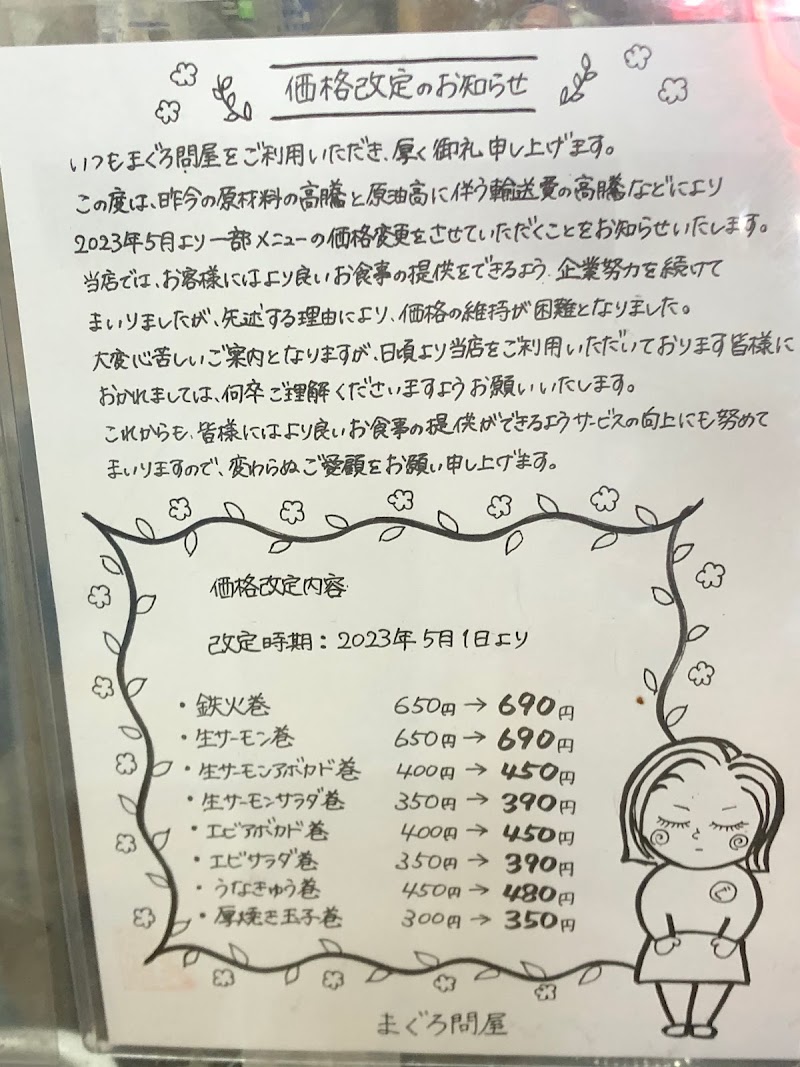 価格改定のお知らせ
いつもまぐろ問屋をご利用いただき、厚く御礼申し上げます。
この度は、昨今の原材料の高騰と原油高に伴う輸送費の高騰などにより
2023年5月より一部メニューの価格変更をさせていただくことをお知らせいたします。
当店では、お客様にはより良いお食事の提供をできるよう、企業努力を続けて
まいりましたが、先述する理由により、価格の維持が困難となりました。
大変心苦しいご案内となりますが、日頃より当店をご利用いただいております皆様に
おかれましては、何卒ご理解くださいますようお願いいたします。
これからも、皆様にはより良いお食事の提供ができるようサービスの向上にも努めて
まいりますので、変わらぬご愛顧をお願い申し上げます。
価格改定内容
改定時期：2023年5月1日より
・鉄火巻 650円→690円
・生サーモン巻 650円→690円
・生サーモンアボカド巻 400円→450円
・生サーモンサラダ巻 350円→390円
・エビアボカド巻 400円→450円
・エビサラダ巻 350円→390円
・うなきゅう巻 450円→480円
・厚焼き玉子巻 300円→350円
ぐ
まぐろ問屋